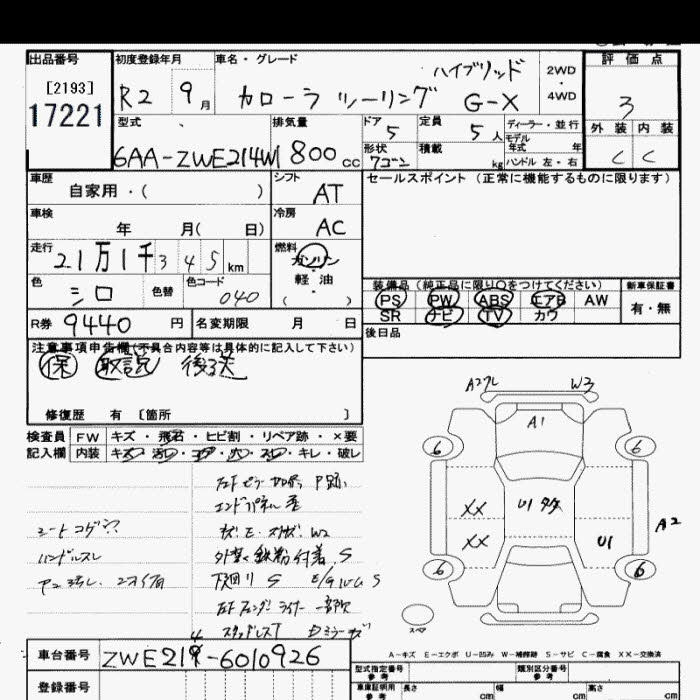 出品番号 初度登録年月 車名・グレード 評価点
[2193]
17221
R2 9月 カローラ ツーリング ハイブリッド G-X 2WD・4WD
3
型式 排気量 ドア 定員 ディーラー・並行 外装 内装
6AA-ZWE214W 1800cc 5 5人 モデル年式 年 C C
形状 ワゴン 積載 kg ハンドル 左・右
車歴 自家用・( ) シフト AT セールスポイント(正常に機能するものに限ります)
車検 年 月( 日) 冷房 AC
走行 21万1千345km 燃料 ガソリン・軽油・( )
色 シロ 色替 色コード 040
装備品(純正品に限り○をつけてください) 新車保証書
PS PW ABS エアB AW 有・無
SR ナビ TV カワ
R券 9440円 名変期限 月 日 後日品
注意事項申告欄(不具合内容等は具体的に記入して下さい)
保 取説 後送
修復歴 有〔箇所 〕
検査員記入欄 FW キズ・飛石・ヒビ割・リペア跡・×要
内装 キズ・汚レ・コゲ・穴・スレ・キレ・破レ
エンドパネル 歪
シートコゲ穴
ハンドルスレ
外装 鉄粉付着 S
下回り S E/G W/G S
左F フェンダーライナー 一部欠
スタッドレスT
A1
W3
6
6
XX
XX
U1
U1
A2
6
6
スペア
A-キズ E-エクボ U-凹み W-補修跡 S-サビ C-腐食 XX-交換済
車台番号 ZWE219-6010926
登録番号
型式指定番号 参考 類別区分番号 参考
車庫証明用 参考 長さ cm 幅 cm 高さ cm